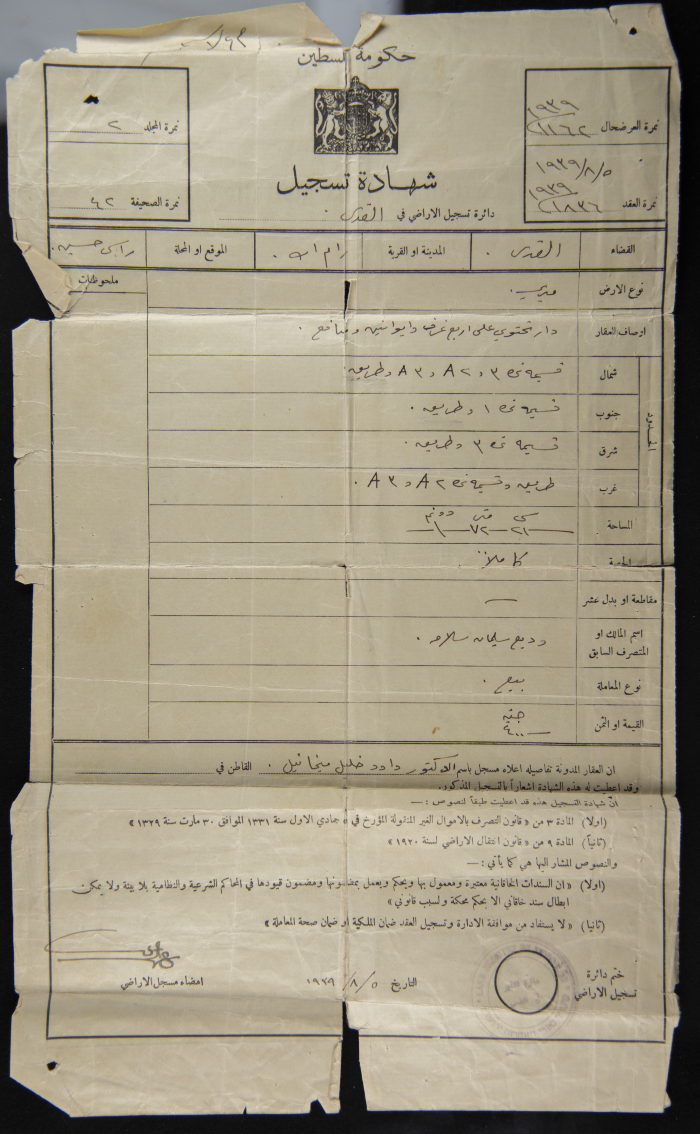 حكومة فلسطين
نمرة العرضحال ١٩٣٩ / ٢١١٦٢
نمرة المجلد ٢
١٩٣٩/٨/٥
نمرة العقد ١٩٣٩ / ٢١٨٣٦
نمرة الصحيفة ٤٢
شهادة تسجيل
دائرة تسجيل الاراضي في القدس .
القضاء القدس . المدينة او القرية رام الله . الموقع او المحلة
نوع الارض ميري .
ملحوظات
اوصاف العقار دار تحتوي على اربع غرف وايوانين ومنافع .
الحدود
شمال قسيمة نمرة ٣ و A٢ و A٣ وطريق .
جنوب قسيمة نمرة ١ وطريق .
شرق قسيمة نمرة ٣ وطريق .
غرب طريق وقسيمة نمرة A٢ و A٣ .
المساحة سم متر دونم
٢١ ٧٢ ١
الحصة كاملاً
مقاطعة او بدل عشر —
اسم المالك او المتصرف السابق وديع سليمان سلامه .
نوع المعاملة بيع .
القيمة او الثمن جنيه
٤٠٠
ان العقار المدونة تفاصيله اعلاه مسجل باسم الدكتور داود خليل ميخائيل . القاطن في
وقد اعطيت له هذه الشهادة اشعاراً بالتسجيل المذكور.
انّ شهادة التسجيل هذه قد اعطيت طبقاً لنصوص :—
(اولا) المادة ٣ من « قانون التصرف بالاموال الغير المنقولة المؤرخ في ٥ جمادي الاول سنة ١٣٣١ الموافق ٣٠ مارت سنة ١٣٢٩ »
(ثانياً) المادة ٩ من « قانون انتقال الاراضي لسنة ١٩٢٠ »
والنصوص المشار اليها هي كما يأتي :—
(اولا) « ان السندات الخاقانية معتبرة ومعمول بها ويحكم ويعمل بمضمونها ومضمون قيودها في المحاكم الشرعية والنظامية بلا بينة ولا يمكن
ابطال سند خاقاني الا بحكم محكمة ولسبب قانوني »
(ثانيا) « لا يستفاد من موافقة الادارة وتسجيل العقد ضمان الملكية او ضمان صحة المعاملة »
ختم دائرة
تسجيل الاراضي
التاريخ ١٩٣٩/٨/٥
امضاء مسجل الاراضي